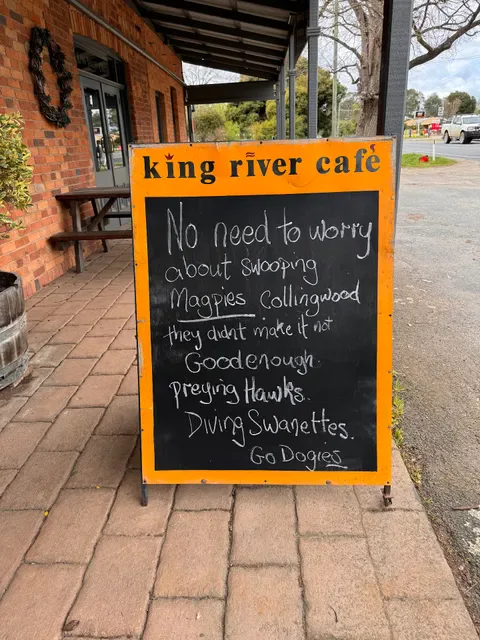 king river café
No need to worry
about swooping
Magpies Collingwood
they didnt make it not
Goodenough.
preying Hawks.
Diving Swanettes.
Go Dogies